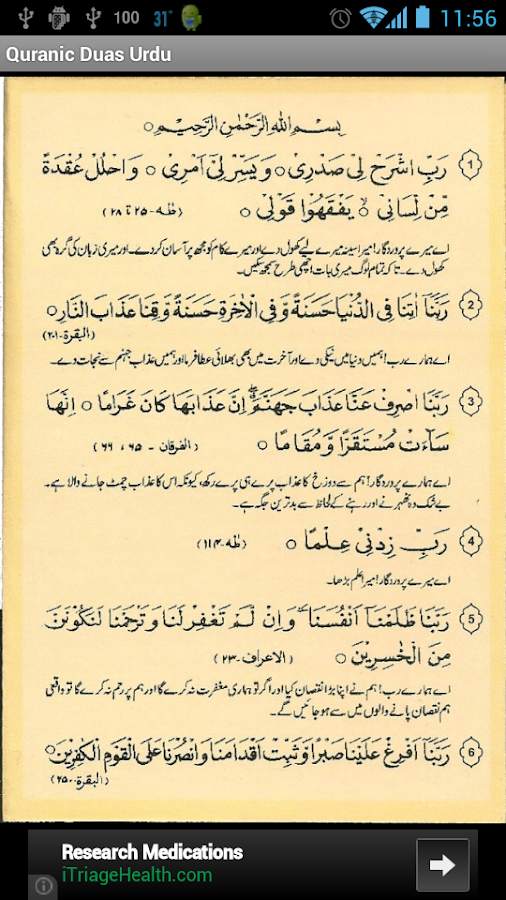 100 31° 11:56
Quranic Duas Urdu
بِسْمِ اللهِ الرَّحْمٰنِ الرَّحِيْمِ ○
۱ رَبِّ اشْرَحْ لِيْ صَدْرِيْ ○ وَيَسِّرْ لِيْٓ اَمْرِيْ ○ وَاحْلُلْ عُقْدَةً
مِّنْ لِّسَانِيْ ○ يَفْقَهُوْا قَوْلِيْ ○ (طٰهٰ-۲۵ تا ۲۸)
اے میرے پروردگار! میرا سینہ میرے لیے کھول دے اور میرے کام کو مجھ پر آسان کر دے۔ اور میری زبان کی گرہ بھی
کھول دے۔ تاکہ تمام لوگ میری بات اچھی طرح سمجھ سکیں۔
۲ رَبَّنَآ اٰتِنَا فِي الدُّنْيَا حَسَنَةً وَّفِي الْاٰخِرَةِ حَسَنَةً وَّقِنَا عَذَابَ النَّارِ ○
(البقرة-۲۰۱)
اے ہمارے رب! ہمیں دنیا میں نیکی دے اور آخرت میں بھی بھلائی عطا فرما اور ہمیں عذاب جہنم سے نجات دے۔
۳ رَبَّنَا اصْرِفْ عَنَّا عَذَابَ جَهَنَّمَ اِنَّ عَذَابَهَا كَانَ غَرَامًا ○ اِنَّهَا
سَآءَتْ مُسْتَقَرًّا وَّمُقَامًا ○ (الفرقان - ۶۵، ۶۶)
اے ہمارے پروردگار! ہم سے دوزخ کا عذاب پرے ہی پرے رکھ، کیونکہ اس کا عذاب چمٹ جانے والا ہے۔
بے شک وہ ٹھہرنے اور رہنے کے لحاظ سے بدترین جگہ ہے۔
۴ رَبِّ زِدْنِيْ عِلْمًا ○ (طٰهٰ-۱۱۴)
اے میرے پروردگار! میرا علم بڑھا۔
۵ رَبَّنَا ظَلَمْنَآ اَنْفُسَنَا وَاِنْ لَّمْ تَغْفِرْ لَنَا وَتَرْحَمْنَا لَنَكُوْنَنَّ
مِنَ الْخٰسِرِيْنَ ○ (الاعراف-۲۳)
اے ہمارے رب! ہم نے اپنا بڑا نقصان کیا اور اگر تو ہماری مغفرت نہ کرے گا اور ہم پر رحم نہ کرے گا تو واقعی
ہم نقصان پانے والوں میں سے ہو جائیں گے۔
۶ رَبَّنَآ اَفْرِغْ عَلَيْنَا صَبْرًا وَّثَبِّتْ اَقْدَامَنَا وَانْصُرْنَا عَلَى الْقَوْمِ الْكٰفِرِيْنَ ○
(البقرة-۲۵۰)
Research Medications
iTriageHealth.com